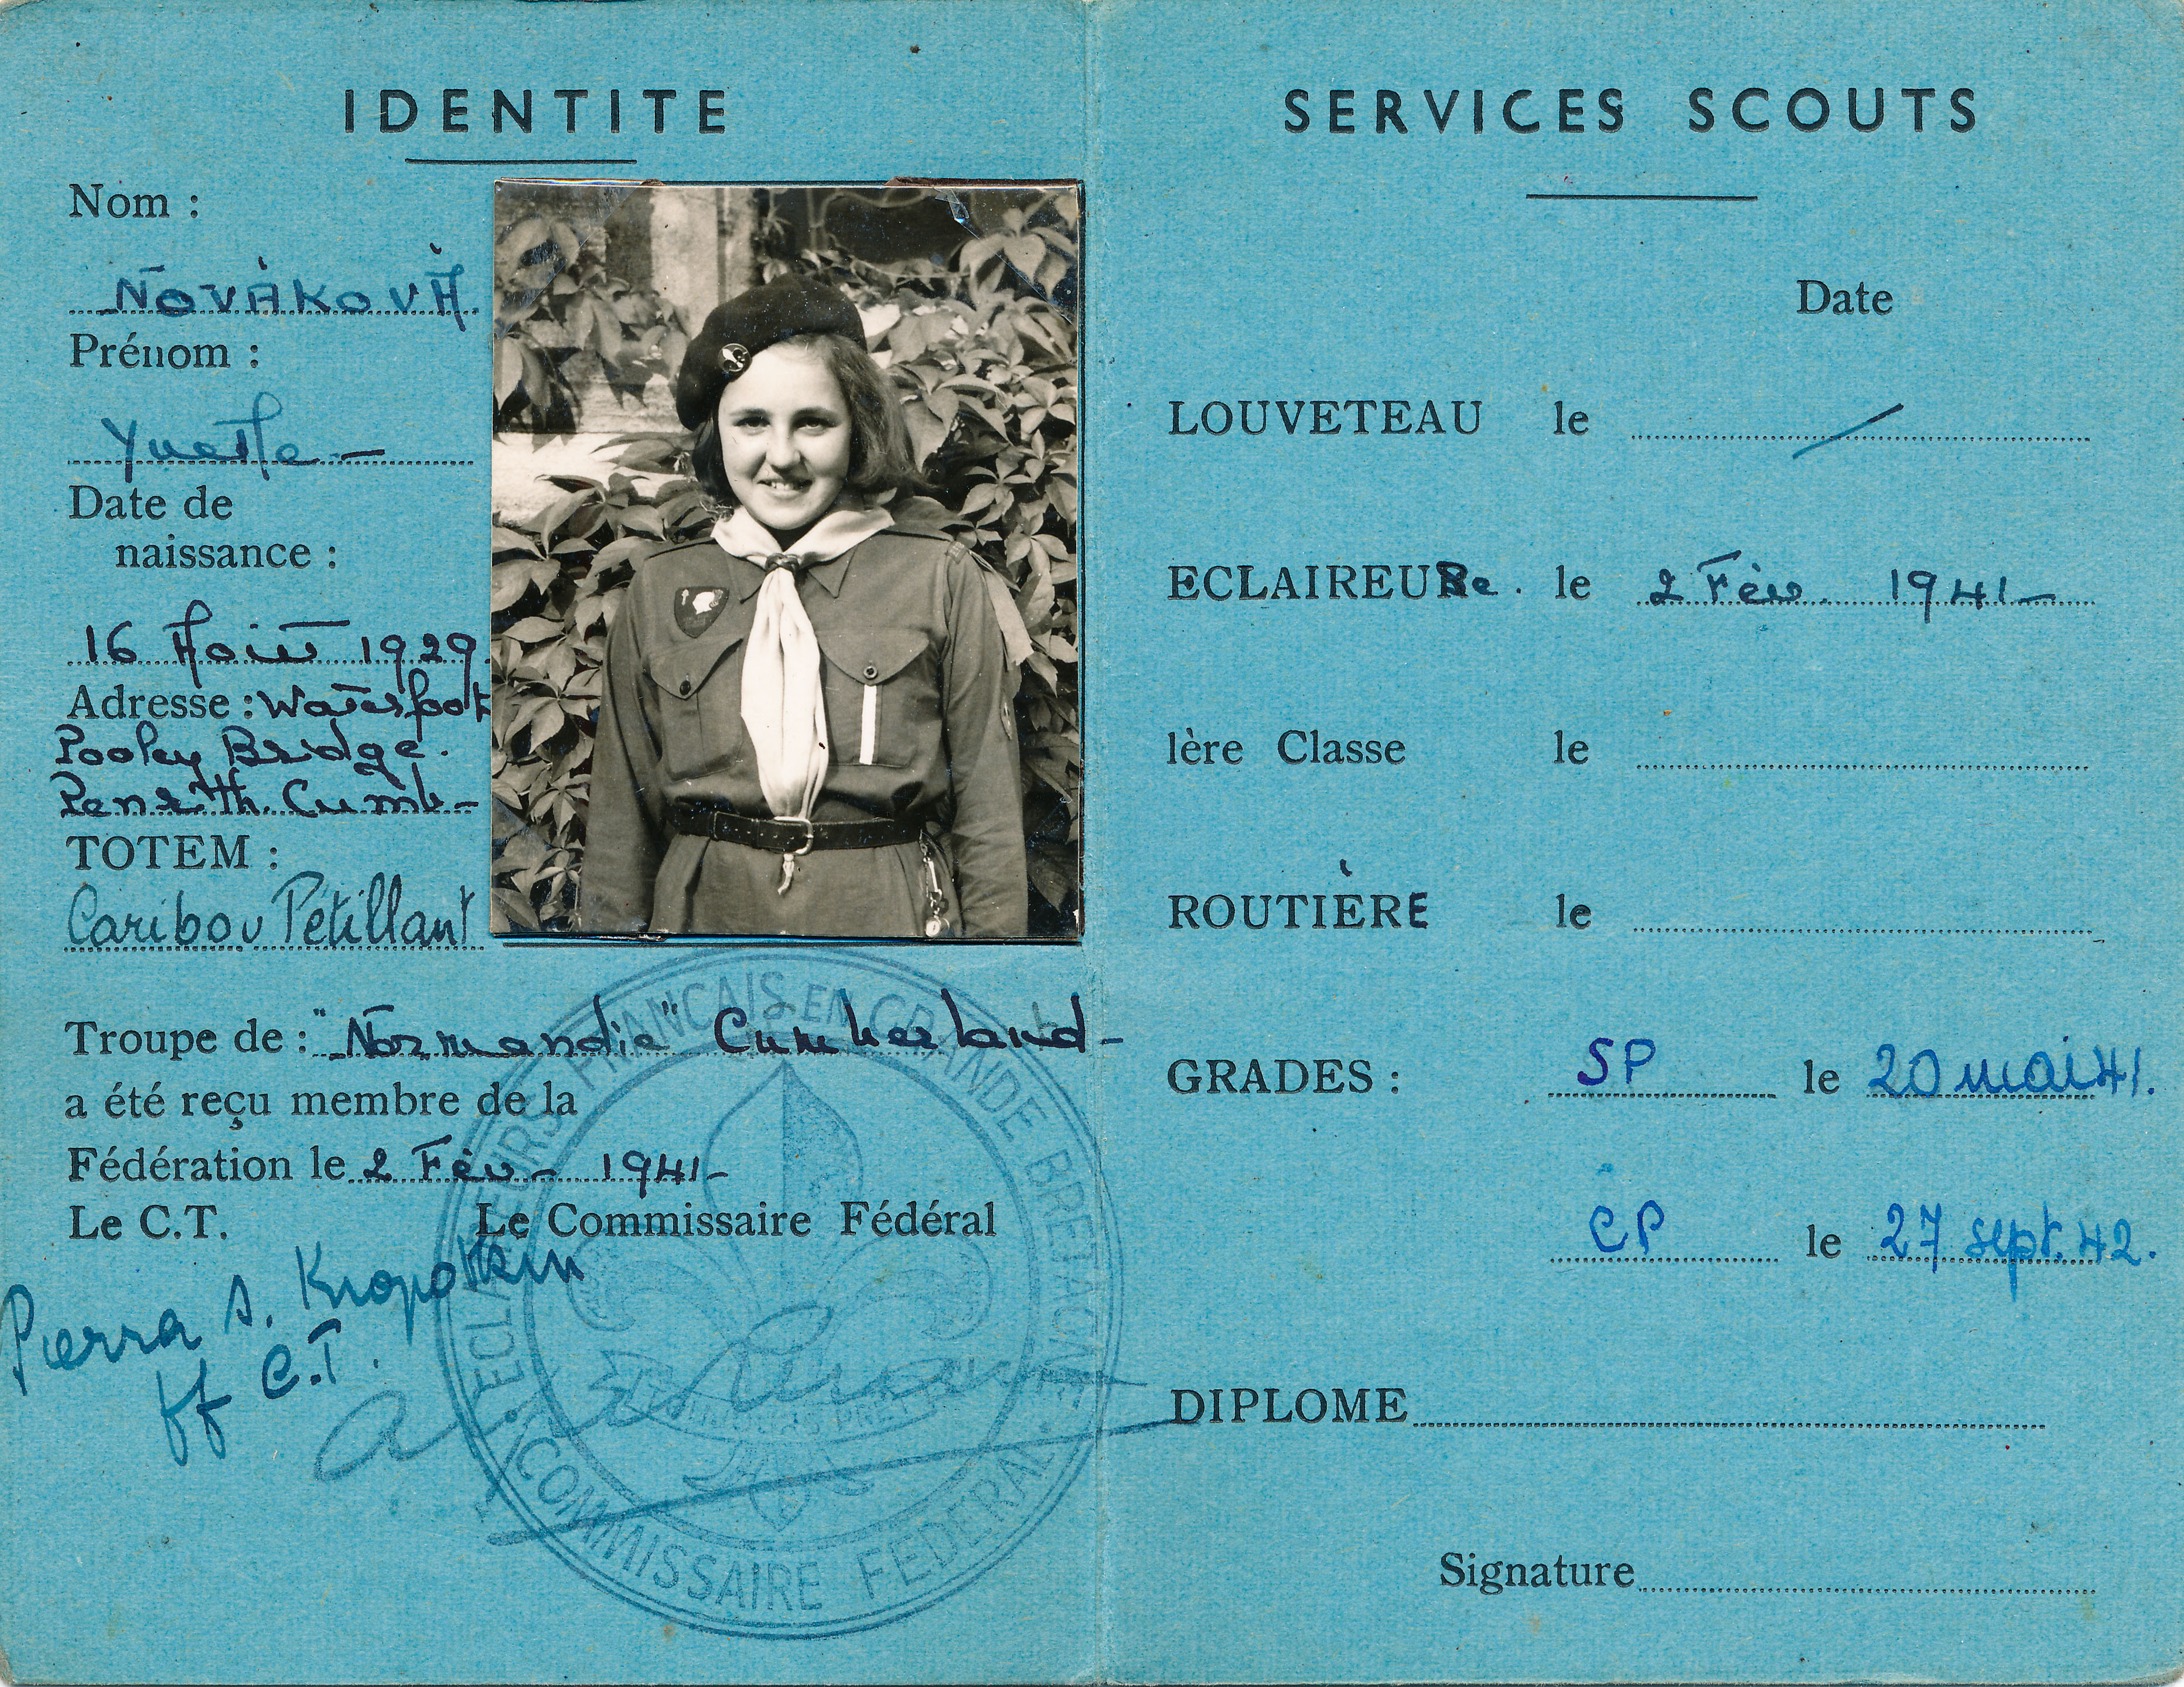 IDENTITE
Nom :
NOVÁKOVÁ.
Prénom :
Yvette -
Date de
naissance :
16 Août 1929
Adresse : Waterfoot
Pooley Bridge.
Penrith. Cumb-
TOTEM :
Caribou Pétillant
Troupe de : "Normandie" Cumberland-
a été reçu membre de la
Fédération le 2 Fév - 1941-
Le C.T. Le Commissaire Fédéral
Pierra A. Kropotkin
ff C.T.
ECLAIREURS FRANCAIS EN GRANDE BRETAGNE
COMMISSAIRE FEDERAL
SERVICES SCOUTS
Date
LOUVETEAU le /
ECLAIREUSe. le 2 Fév. 1941-
1ère Classe le
ROUTIÈRE le
GRADES : SP le 20 mai 41.
CP le 27 sept. 42.
DIPLOME
Signature